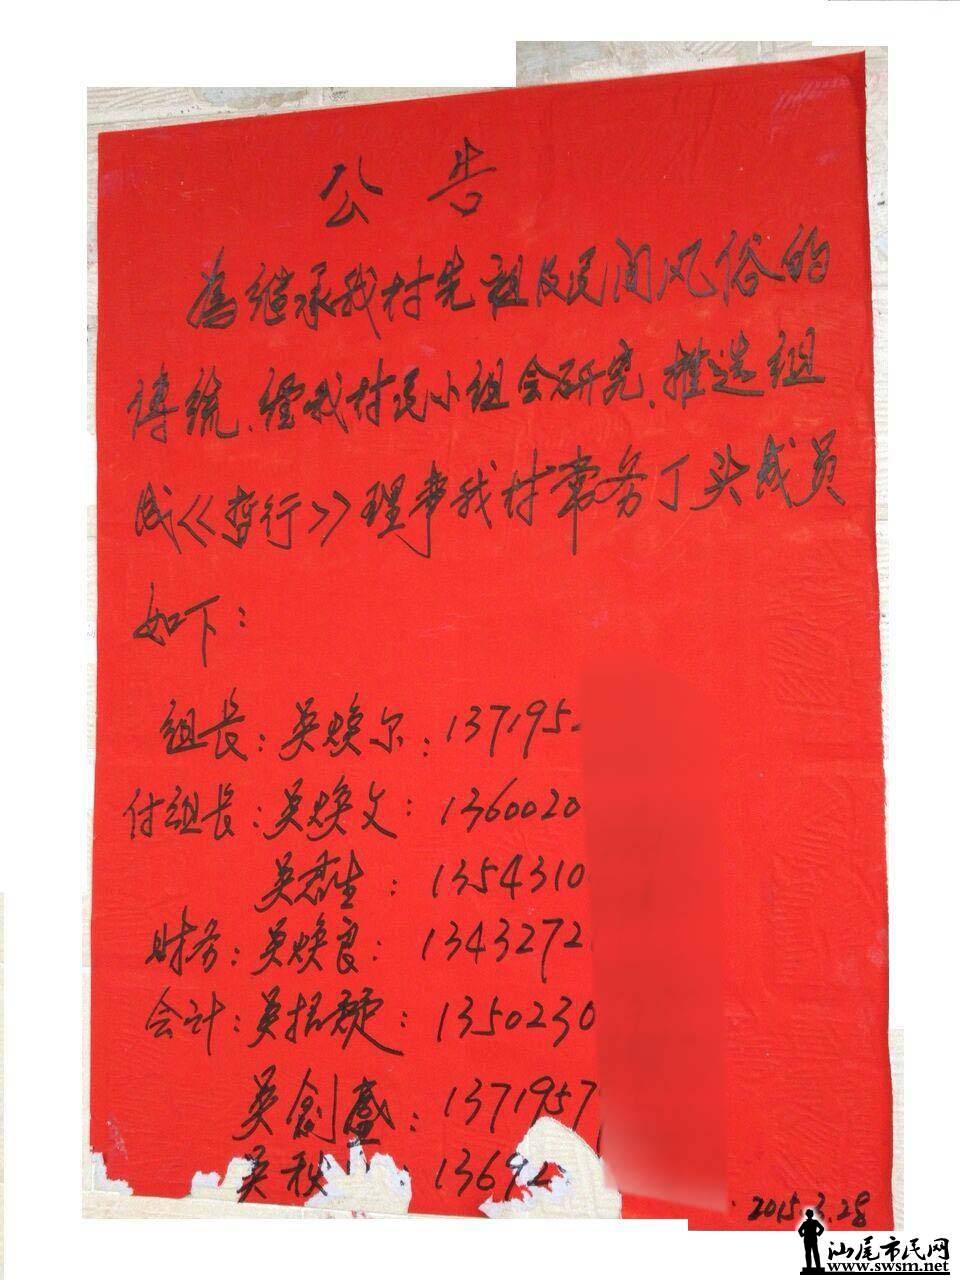 公告
为继承我村先祖及民间风俗的
传统、经我村民小组会研究、推选组
成《暂行》理事我村常务丁头成员
如下：
组长：吴焕尔：137195
付组长：吴焕文：1360020
吴君生：1354310
财务：吴焕良：1343272
会计：吴招：1350230
吴创盛：1371957
吴秋：1369
2015.3.28
汕尾市民网
www.swsm.net